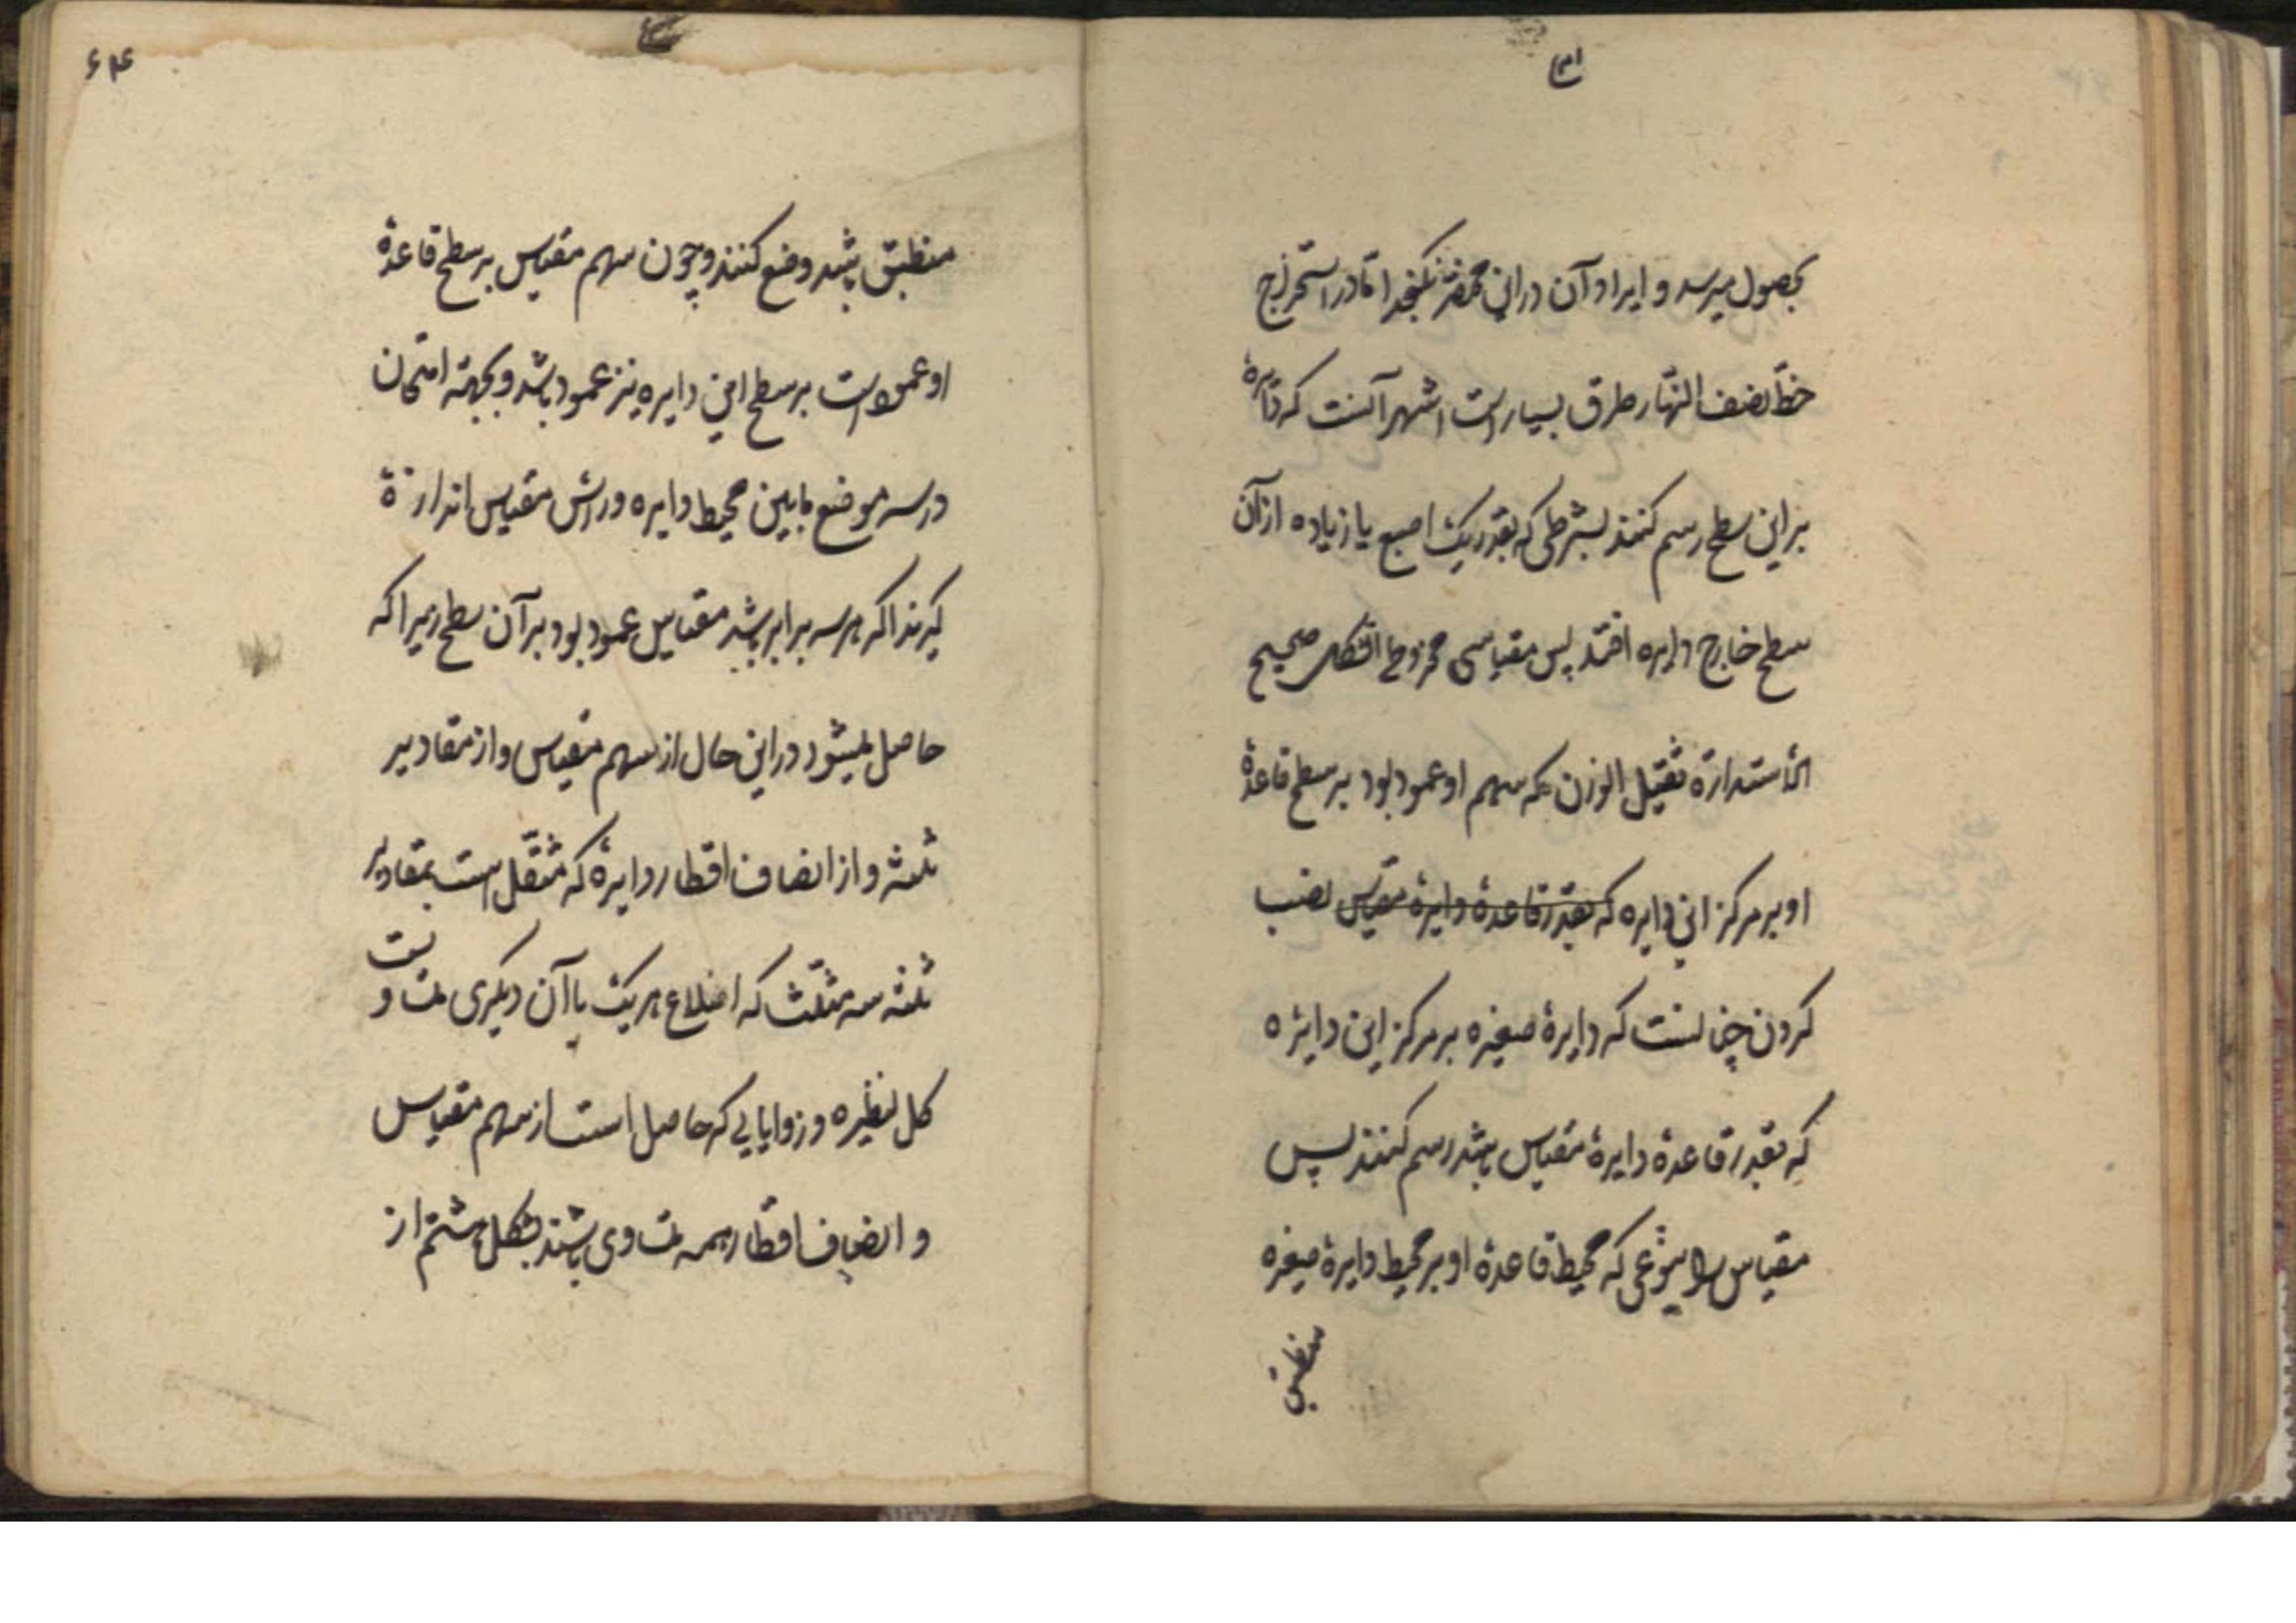 ۳۱
بحصول میرسد و ایراد آن درین مختصر نگنجد اما در استخراج
خطّ نصف النهار طرق بسیار است اشهر آنست که دایرهٔ
برین سطح رسم کنند بشرطی که بقدر یک اصبع یا زیاده از آن
سطح خارج دایره افتد پس مقیاسی مخروط الشکل صحیح
الاستدارة ثقیل الوزن که سهم او عمود بود بر سطح قاعدهٔ
او بر مرکز این دایره که بقدر قاعدهٔ دایرهٔ مقیاس نصب
کردن چنانست که دایرهٔ صغیره بر مرکز این دایره
که بقدر قاعدهٔ دایرهٔ مقیاس باشد رسم کنند پس
مقیاس را بنوعی که محیط قاعدهٔ او بر محیط دایرهٔ صغیره
منطبق
۶۴
منطبق باشد وضع کنند و چون سهم مقیاس بر سطح قاعدهٔ
او عمود است بر سطح این دایره نیز عمود باشد و بجهة امتحان
در سه موضع مابین محیط دایره و راس مقیاس اندازة
گیرند اگر هر سه برابر باشد مقیاس عمود بود بر آن سطح زیرا که
حاصل میشود درین حال از سهم مقیاس و از مقادیر
ثلثه و از انصاف اقطار دایرهٔ که متصل است بمقادیر
ثلثه سه مثلث که اضلاع هر یک با آن دیگری متساویست
کل لنظیره و زوایایی که حاصل است از سهم مقیاس
و انصاف اقطار همه متساوی باشند بشکل هشتم از